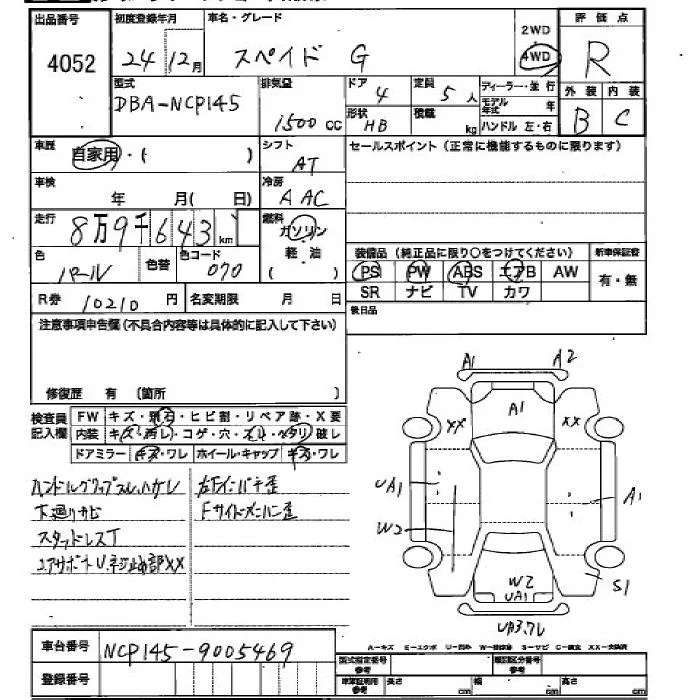 出品番号 初度登録年月 車名・グレード 2WD 評価点
4052 24年12月 スペイド G 4WD R
型式 排気量 ドア 定員 ディーラー・並行 外装 内装
DBA-NCP145 1500cc 4 5人 モデル年式 年 B C
形状 積載
HB kg ハンドル 左・右
車歴 シフト セールスポイント(正常に機能するものに限ります)
自家用・( ) AT
車検 冷房
年 月(日) AAC
走行 燃料
8万9千643km ガソリン
色 色替 色コード 軽油 装備品(純正品に限り○をつけてください) 新車保証書
パール 070 ( ) PS PW ABS エアB AW 有・無
R券 10210円 名変期限 月 日 SR ナビ TV カワ
注意事項申告欄(不具合内容等は具体的に記入して下さい) 後日品
修復歴 有 〔箇所 〕
検査員記入欄 FW キズ・飛石・ヒビ割・リペア跡・X要
内装 キズ・汚レ・コゲ・穴・スレ・ヘタリ・破レ
ドアミラー キズ・ワレ ホイール・キャップ キズ・ワレ
ハンドルグリップスレ、ハガレ 左F インパネ歪
下廻りサビ Fサイドメンバー歪
スタッドレスT
コアサポートU、ネジ止め部XX
A1 A2
A1
XX XX
UA1 A1
W2
W2 S1
UA1
UA3.ワレ
A-キズ E-エクボ U-凹み W-補修跡 S-サビ C-腐食 XX-交換済
車台番号 NCP145-9005469
型式指定番号参考 類別区分番号参考
登録番号 車庫証明用参考 長さ cm 幅 cm 高さ cm